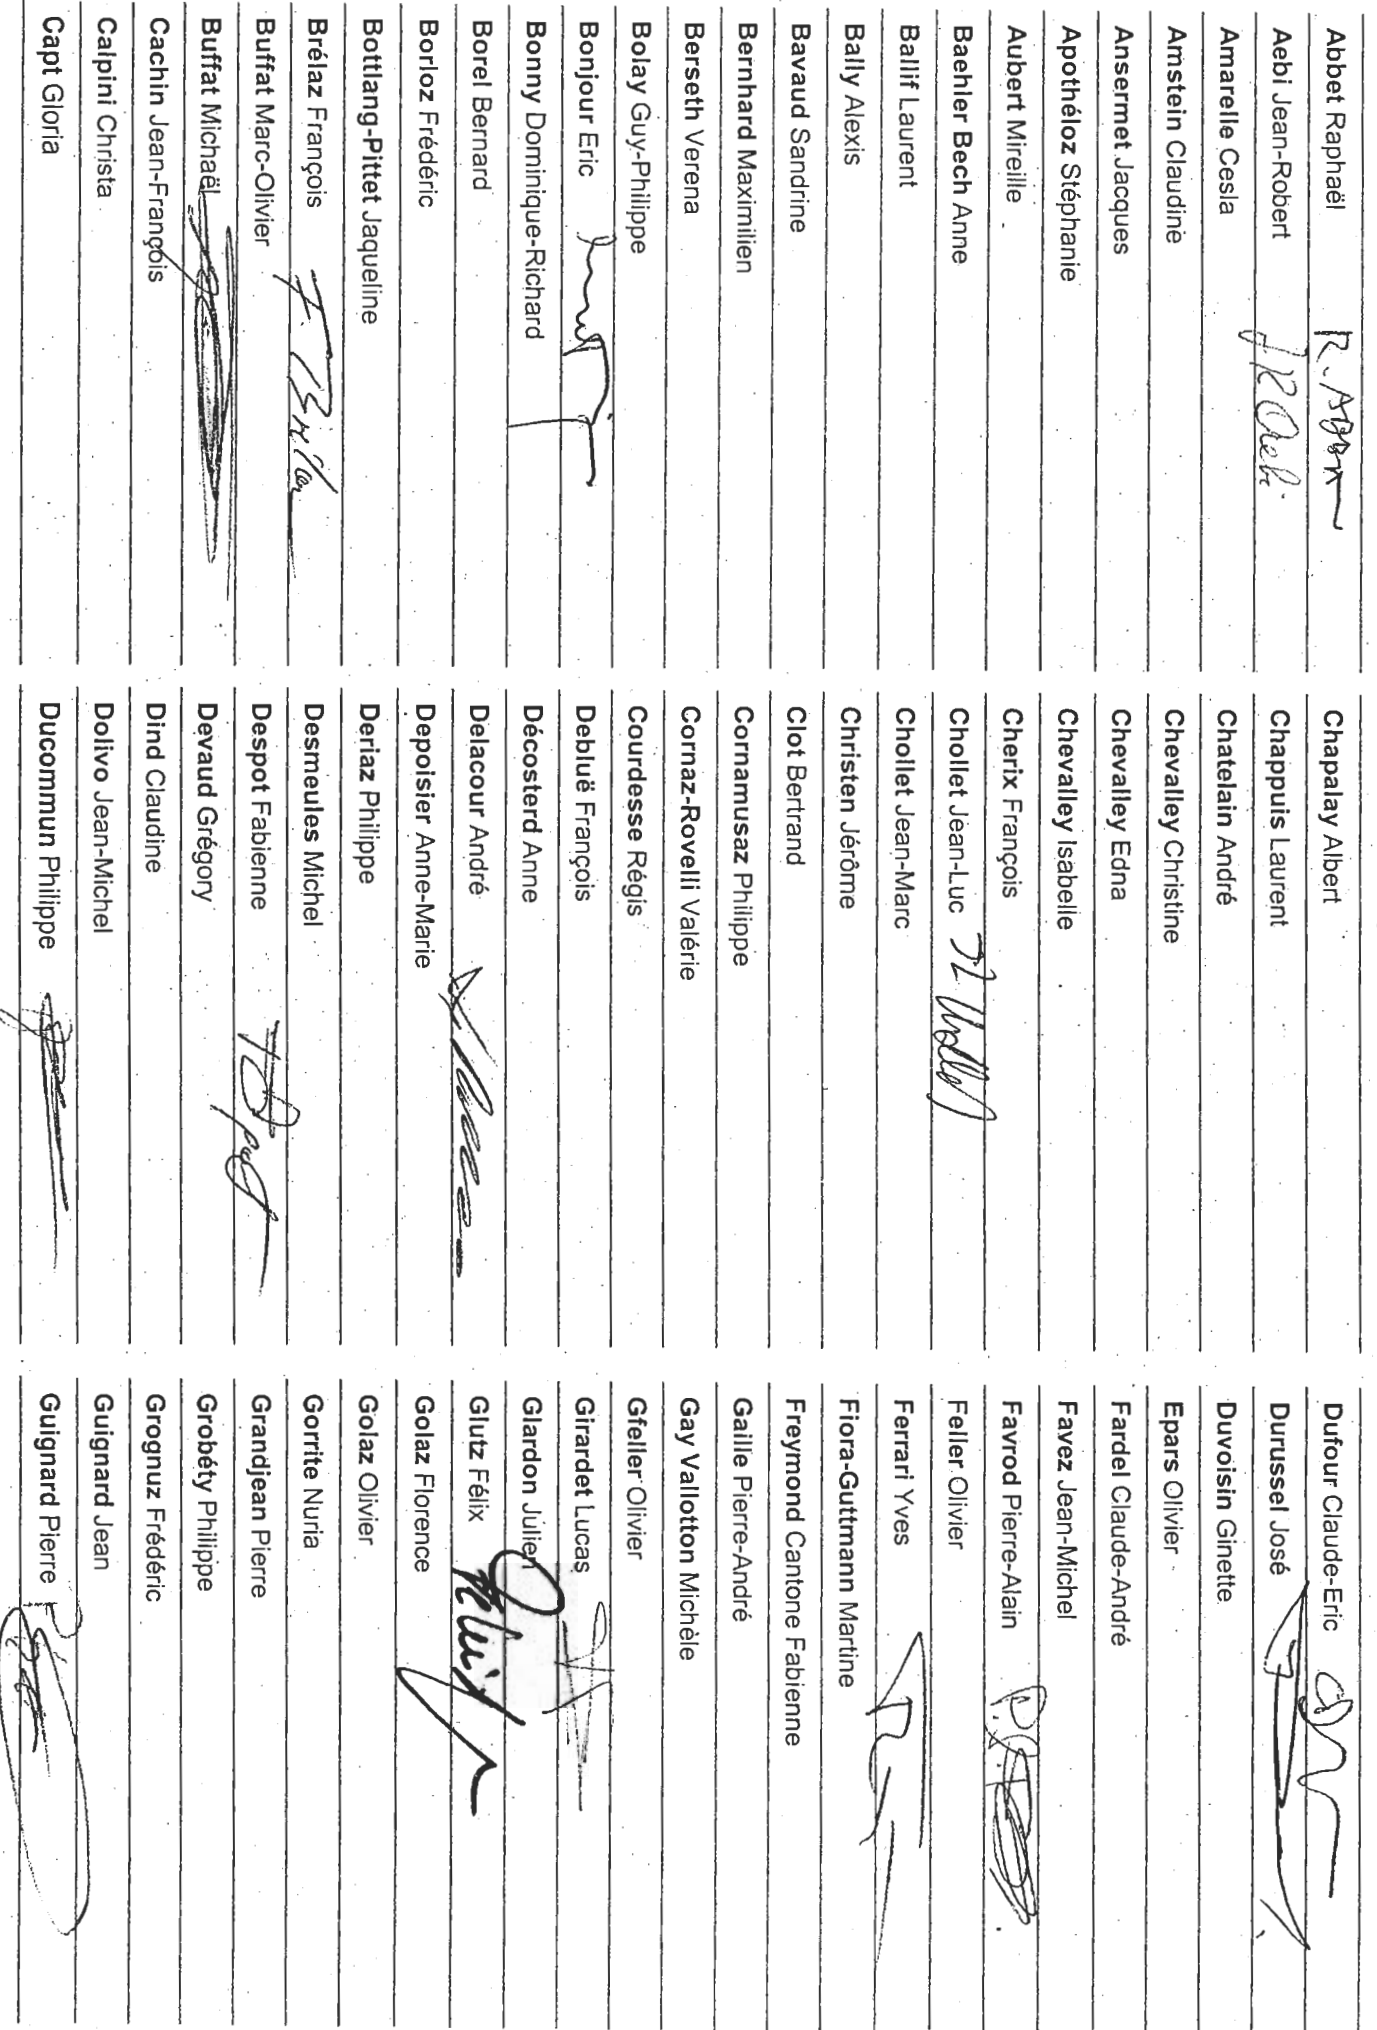 Abbet Raphaël R. Abbet
Aebi Jean-Robert JR Aebi
Amarelle Cesla
Amstein Claudine
Ansermet Jacques
Apothéloz Stéphanie
Aubert Mireille
Baehler Bech Anne
Ballif Laurent
Bally Alexis
Bavaud Sandrine
Bernhard Maximilien
Berseth Verena
Bolay Guy-Philippe
Bonjour Eric
Bonny Dominique-Richard
Borel Bernard
Borloz Frédéric
Bottlang-Pittet Jaqueline
Brélaz François
Buffat Marc-Olivier
Buffat Michaël
Cachin Jean-François
Calpini Christa
Capt Gloria
Chapalay Albert
Chappuis Laurent
Chatelain André
Chevalley Christine
Chevalley Edna
Chevalley Isabelle
Cherix François
Chollet Jean-Luc
Chollet Jean-Marc
Christen Jérôme
Clot Bertrand
Cornamusaz Philippe
Cornaz-Rovelli Valérie
Courdesse Régis
Debluë François
Décosterd Anne
Delacour André
Depoisier Anne-Marie
Deriaz Philippe
Desmeules Michel
Despot Fabienne
Devaud Grégory
Dind Claudine
Dolivo Jean-Michel
Ducommun Philippe
Dufour Claude-Eric
Durussel José
Duvoisin Ginette
Epars Olivier
Fardel Claude-André
Favez Jean-Michel
Favrod Pierre-Alain
Feller Olivier
Ferrari Yves
Fiora-Guttmann Martine
Freymond Cantone Fabienne
Gaille Pierre-André
Gay Vallotton Michèle
Gfeller Olivier
Girardet Lucas
Glardon Julien
Glutz Félix
Golaz Florence
Golaz Olivier
Gorrite Nuria
Grandjean Pierre
Grobéty Philippe
Grognuz Frédéric
Guignard Jean
Guignard Pierre